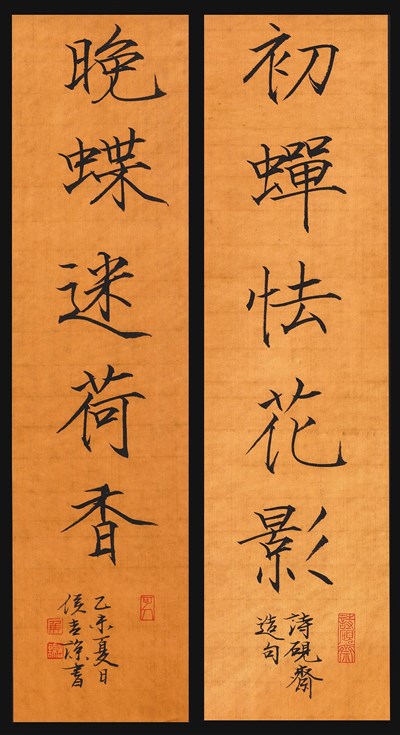 初蟬怯花影
詩硯齋
造句
晚蝶迷荷香
乙未夏日
侯吉諒書